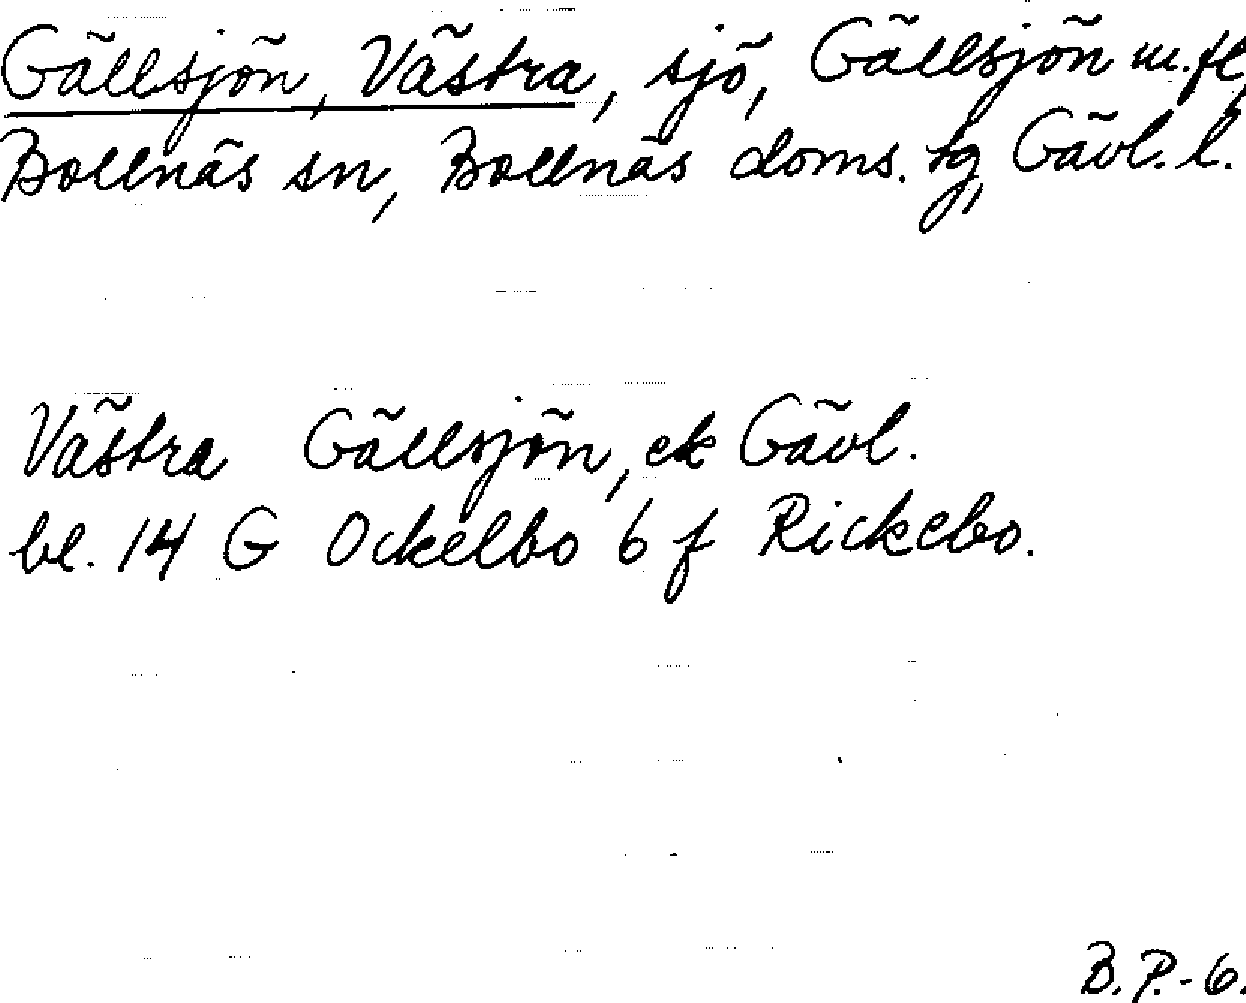 Gällsjön, Västra, sjö, Gällsjön m.fl,
Bollnäs sn, Bollnäs doms. tg, Gävl. l.
Västra Gällsjön, ek Gävl.
bl. 14 G Ockelbo 6 f Rickebo.
B. P. - 6.